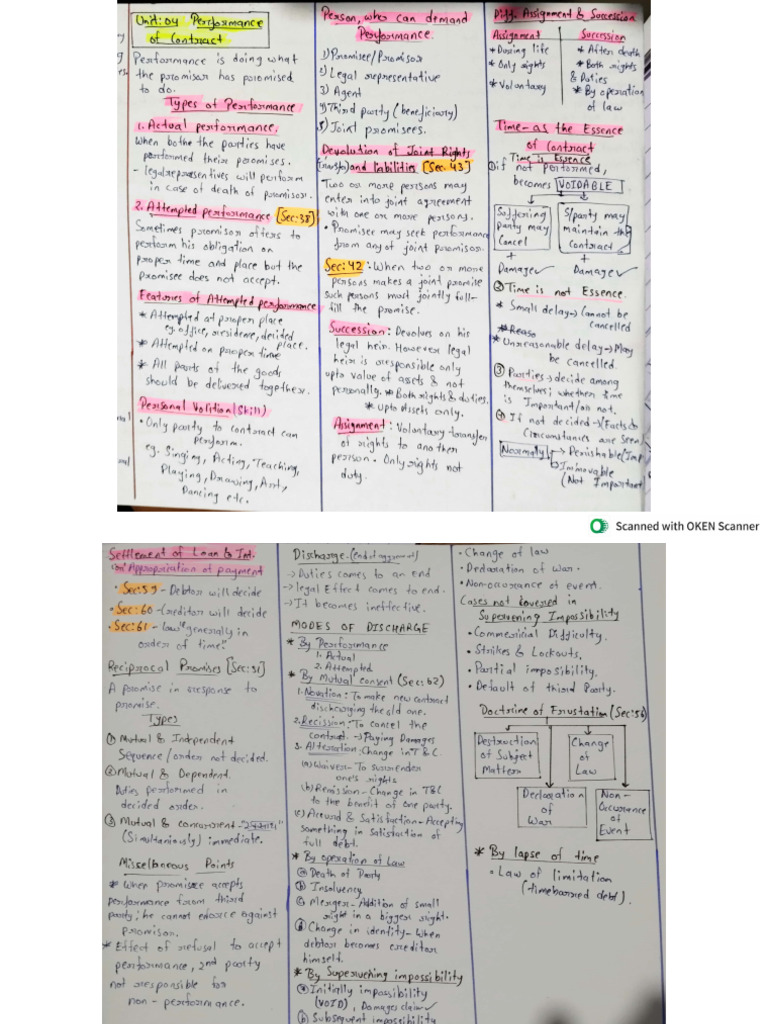 Unit:04 Performance
of Contract
Performance is doing what
the promisor has promised
to do.
Types of Performance
1. Actual performance.
When bothe the parties have
performed their promises.
- legal representives will perform
in case of death of promisor.
2. Attempted performance [Sec:38]
Sometimes promisor offers to
perform his obligation on
proper time and place but the
promisee does not accept.
Features of Attempted performance
* Attempted at proper place
eg. office, residense, decided
place.
* Attempted on proper time
* All parts of the goods
should be delivered togethere.
Personal Volition (Skill)
• Only party to contract can
perform.
eg. Singing, Acting, Teaching,
Playing, Drawing, Art,
Dancing etc.
Person, who can demand
Performance.
1) Promisee/Promisor
2) Legal representative
3) Agent
4) Third party (beneficiary)
5) Joint promisees.
Devolution of Joint Rights
(transfer) and liabilities [Sec. 43]
Two or more persons may
enter into joint agreement
with one or more persons.
• Promisee may seek performance
from any of joint promisor.
Sec: 42 : When two or more
persons makes a joint promise
such persons must jointly full-
fill the promise.
Succession: Devolves on his
legal heir. However legal
heir is responsible only
upto value of assets & not
personally. * Both rights & duties.
* upto Assets only.
Assignment: Voluntary transfer
of rights to another
person. Only rights not
duty.
Diff. Assignment & Succession
Assignment Succession
* During life * After death
* Only rights * Both rights
& Duties
* Voluntary * By operation
of law
Time - as the Essence
of Contract
Time is Essence
① if not performed,
becomes VOIDABLE
Suffering
party may
Cancel
+
Damages ✓
S/party may
maintain the
contract
+
Damages ✓
② Time is not Essence.
* Small delay → Cannot be
cancelled
* Unreasonable delay → May
be cancelled.
③ Parties → decide among
themselves; whether time
is Important/or not.
④ If not decided → (Facts &
Circumstances are seen)
Normally → Perishable (Imp
→ Immovable
(Not Important
Scanned with OKEN Scanner
Settlement of Loan & Int.
or Appropriation of payment
• Sec:59 - Debtor will decide
• Sec: 60 - Creditor will decide
• Sec: 61 - law "generally in
order of time".
Reciprocal Promises [Sec: 51]
A promise in response to
promise.
Types
① Mutual & Independent
Sequence/order not decided.
② Mutual & Dependent.
Duties performed in
decided order.
③ Mutual & concurrent
(Simultaniously) immediate.
Miscellaneous Points
* When promisee accepts
performance from third
party; he cannot enforce against
promisor.
* Effect of refusal to accept
performance, 2nd party
not responsible for
non-performance.
Discharge. (end of agreement)
→ Duties comes to an end
→ legal Effect comes to end.
→ It becomes ineffective.
MODES OF DISCHARGE
* By Performance
1. Actual
2. Attempted
* By Mutual consent (Sec: 62)
1. Novation: To make new contract
discharging the old one.
2. Recission: To cancel the
contract. → Paying Damages
3. Alteration: Change in T & C.
(a) Waiver - To surrender
one's rights
(b) Remission - Change in T&C
to the benefit of one party.
(c) Accord & Satisfaction - Accepting
something in Satisfaction of
full debt.
* By operation of Law
ⓐ Death of Party
ⓑ Insolvency
ⓒ Merger - Addition of small
right in a bigger right.
ⓓ Change in identity - When
debtor becomes creditor
himself.
* By Supervening impossibility
ⓐ Initially impossibility
(VOID), Damages claim ✓
ⓑ Subsequent impossibility
• Change of law
• Declaration of War.
• Non-occurance of event.
Cases not Covered in
Supervening Impossibility
• Commericial Difficulty.
• Strikes & Lockouts,
• Partial impossibility.
• Default of third Party.
Doctrine of Frustation (Sec:56)
Destruction
of Subject
Matter
Change
of
Law
Declaration
of
War
Non-
Occurance
of
Event
* By lapse of time
• Law of limitation
(timebarred debt).